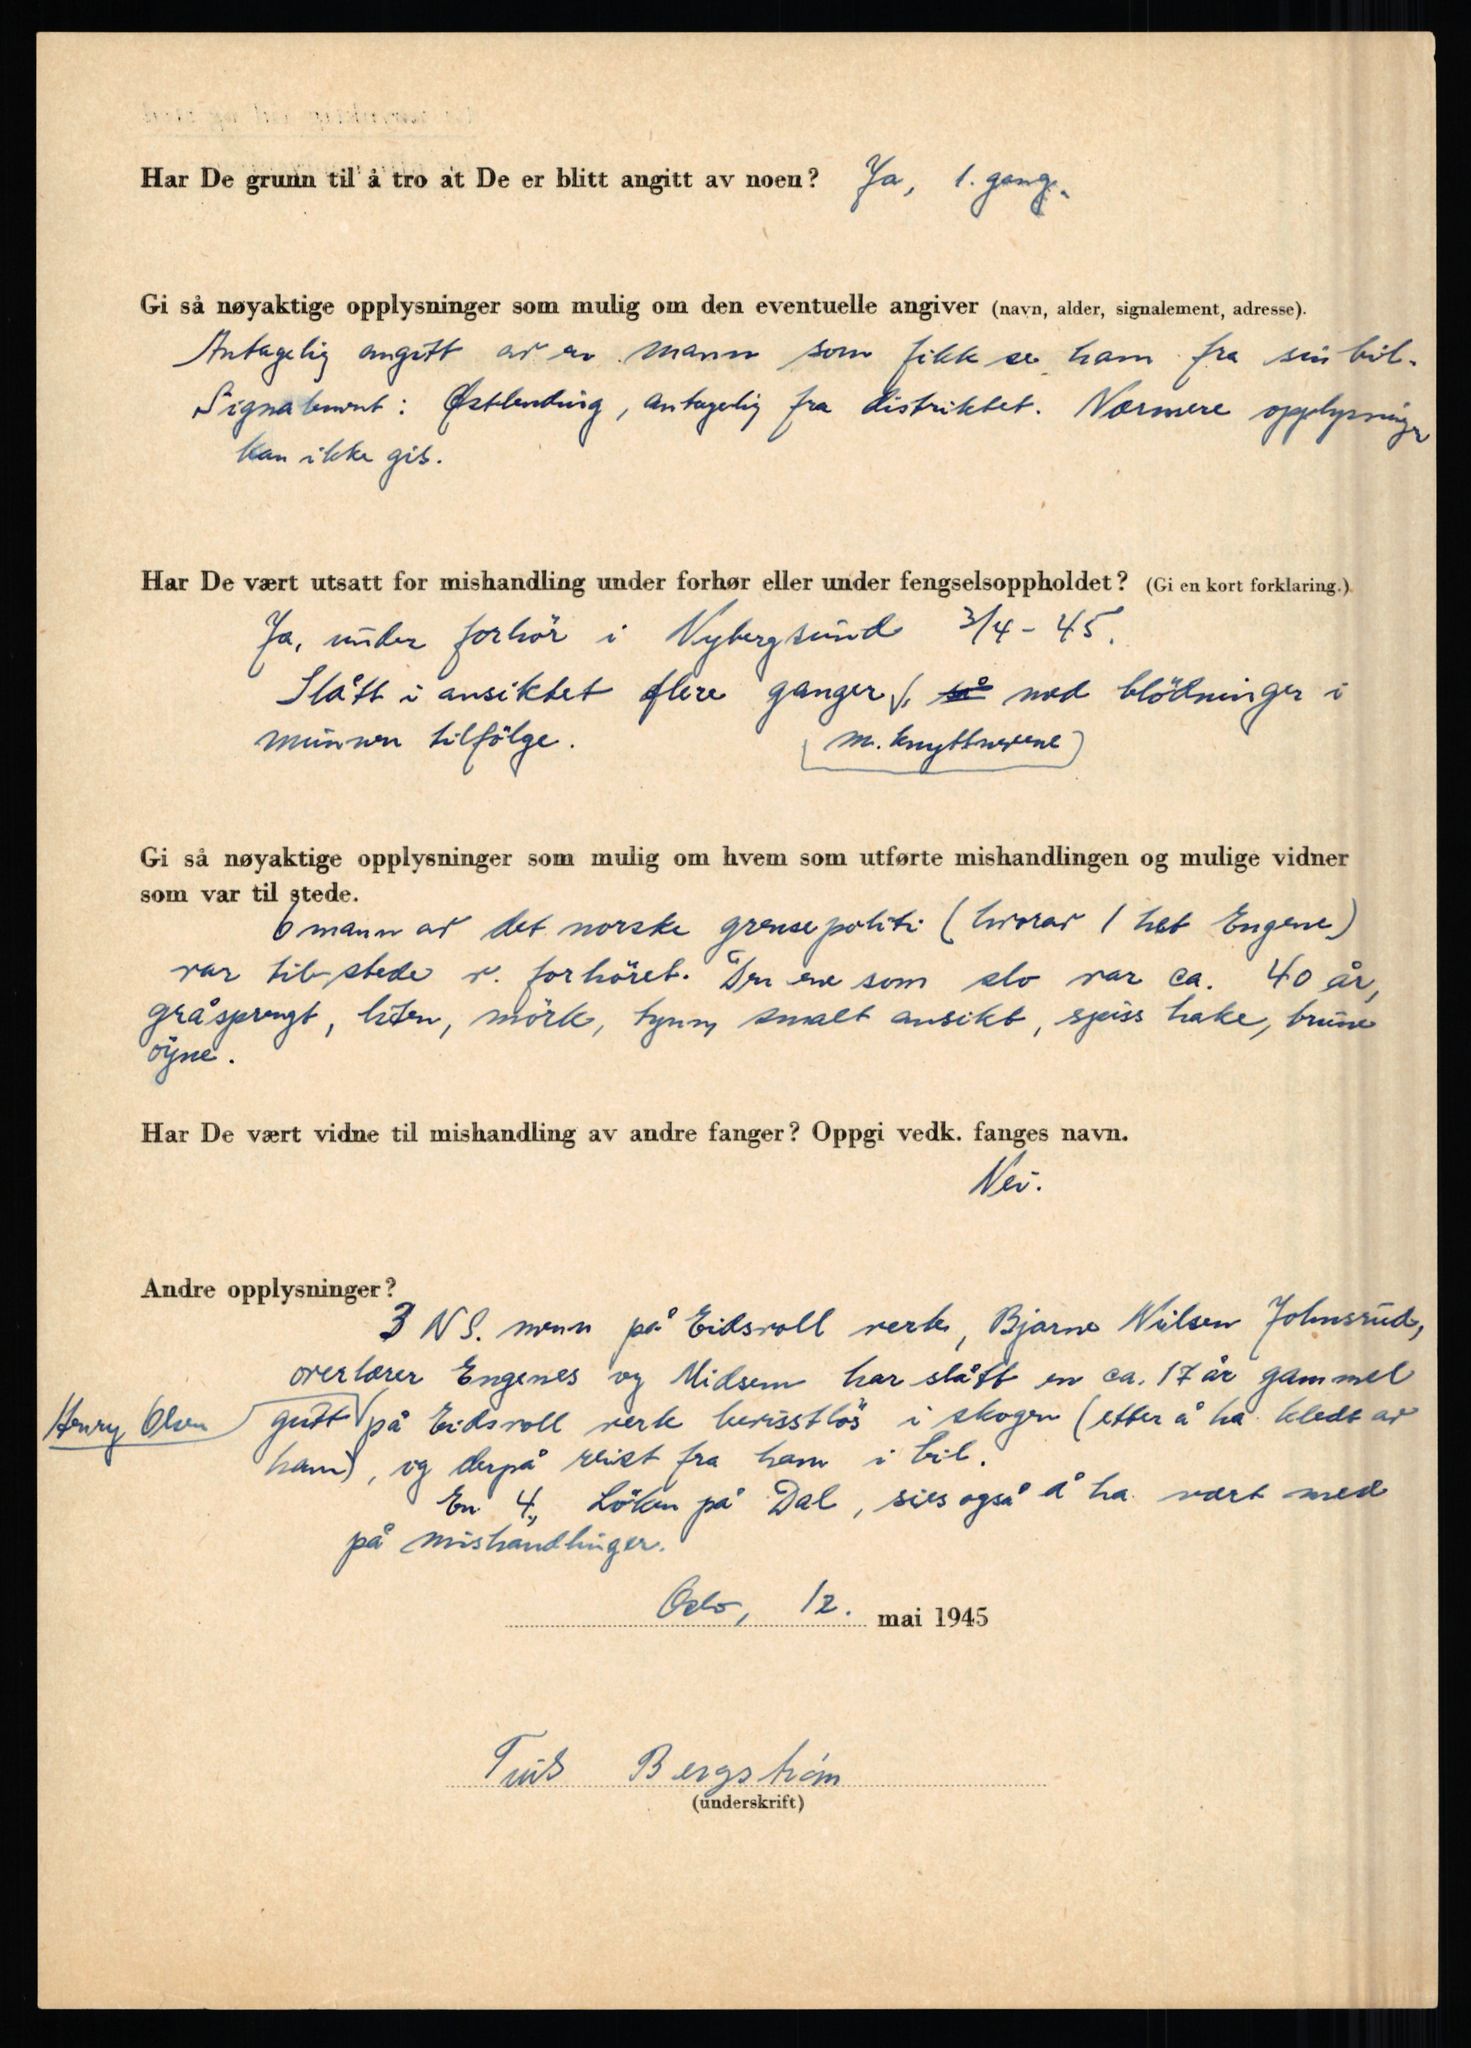 Har De grunn til å tro at De er blitt angitt av noen? Ja, 1. gang.
Gi så nøyaktige opplysninger som mulig om den eventuelle angiver (navn, alder, signalement, adresse).
Antagelig angitt av en mann som fikk se ham fra sin bil.
Signalement: Østlending, antagelig fra distriktet. Nærmere opplysninger
kan ikke gis.
Har De vært utsatt for mishandling under forhør eller under fengselsoppholdet? (Gi en kort forklaring.)
Ja, under forhör i Nybergsund 3/4-45.
Slått i ansiktet flere ganger, så med blödninger i
munnen tilfölge. (m. knyttnevene)
Gi så nøyaktige opplysninger som mulig om hvem som utførte mishandlingen og mulige vidner
som var til stede.
6 mann av det norske grensepoliti (hvorav 1 het Engene)
var til stede v. forhöret. Den ene som slo var ca. 40 år,
gråsprengt, liten, mörk, tynn, smalt ansikt, spiss hake, brune
öyne.
Har De vært vidne til mishandling av andre fanger? Oppgi vedk. fanges navn.
Nei.
Andre opplysninger?
3 NS. menn på Eidsvoll verk, Bjarne Nilsen Johnsrud,
overlærer Engenes og Midsem har slått en ca. 17 år gammel
Henry Olsen gutt på Eidsvoll verk bevisstlös i skogen (etter å ha kledt av
ham), og derpå reist fra ham i bil.
En 4., Löken på Dal, sies også å ha vært med
på mishandlinger.
Oslo, 12. mai 1945
Bergstrøm
(underskrift)